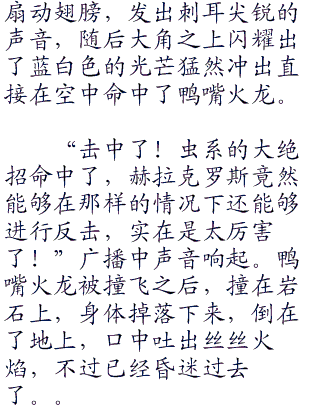 扇动翅膀，发出刺耳尖锐的
声音，随后大角之上闪耀出
了蓝白色的光芒猛然冲出直
接在空中命中了鸭嘴火龙。
“击中了！虫系的大绝
招命中了，赫拉克罗斯竟然
能够在那样的情况下还能够
进行反击，实在是太厉害
了！”广播中声音响起。鸭
嘴火龙被撞飞之后，撞在岩
石上，身体掉落下来，倒在
了地上，口中吐出丝丝火
焰，不过已经昏迷过去
了。。